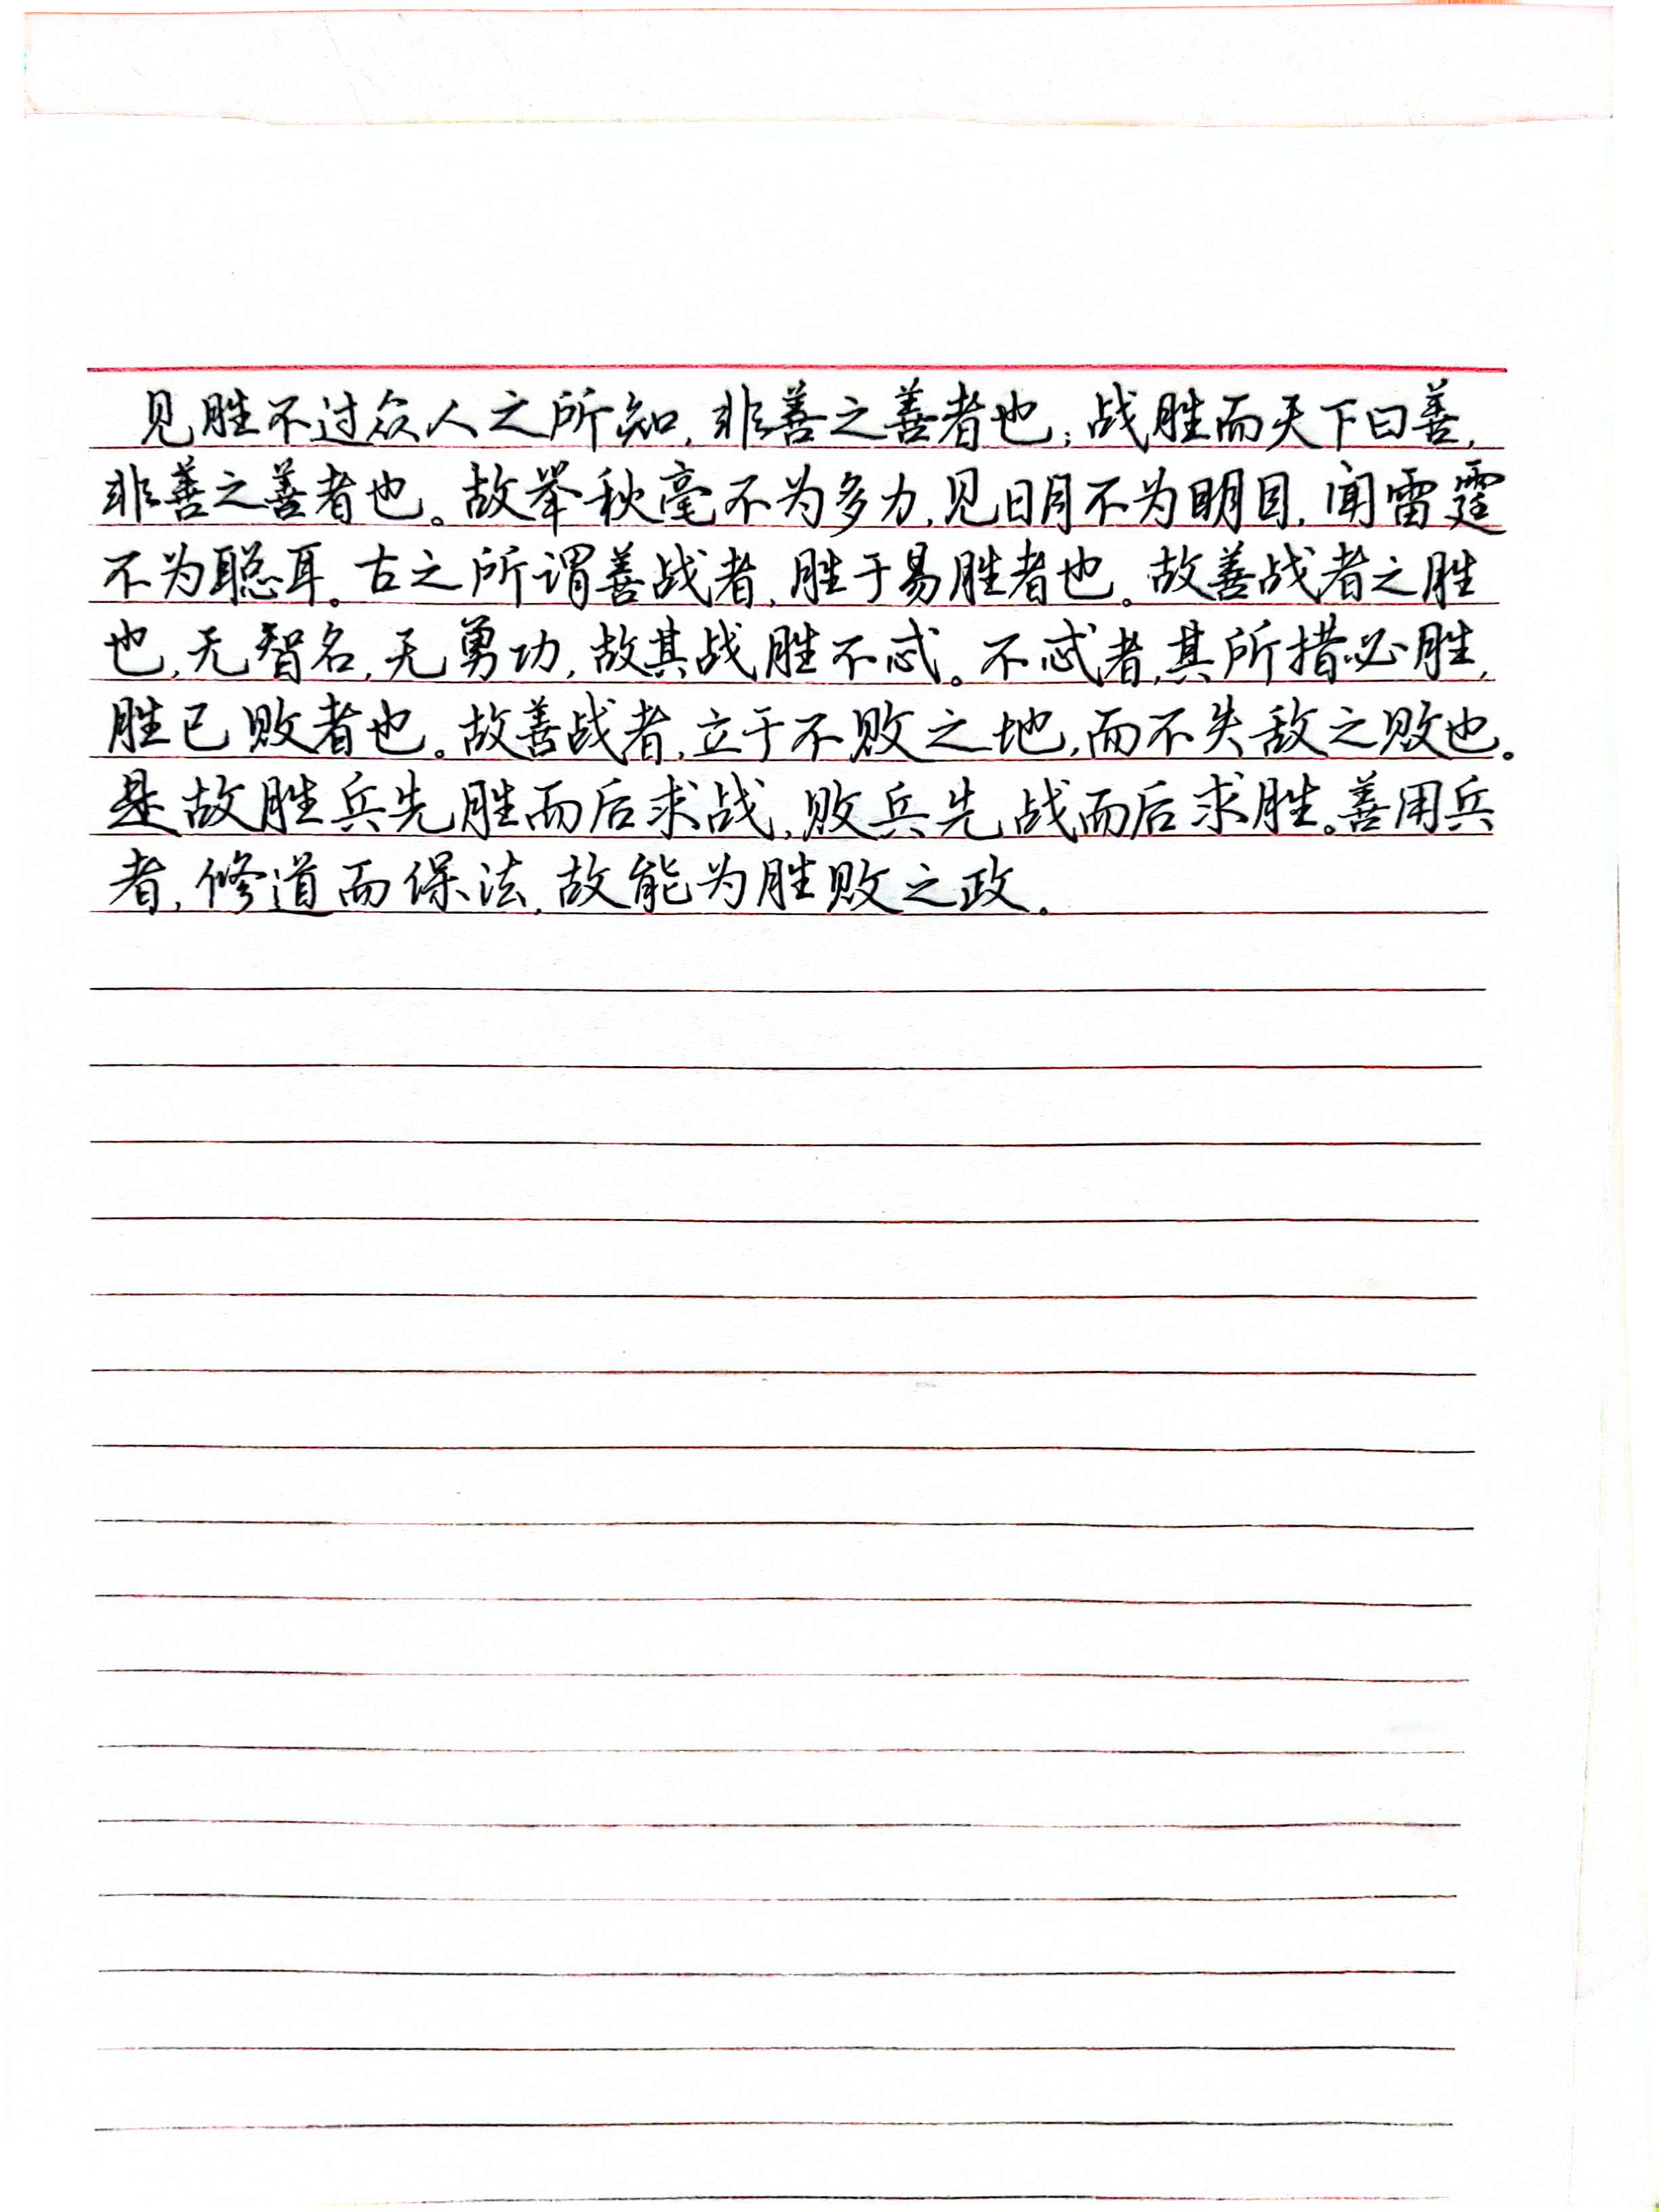 见胜不过众人之所知,非善之善者也;战胜而天下曰善,
非善之善者也。故举秋毫不为多力,见日月不为明目,闻雷霆
不为聪耳。古之所谓善战者,胜于易胜者也。故善战者之胜
也,无智名,无勇功,故其战胜不忒。不忒者,其所措必胜,
胜已败者也。故善战者,立于不败之地,而不失敌之败也。
是故胜兵先胜而后求战,败兵先战而后求胜。善用兵
者,修道而保法,故能为胜败之政。